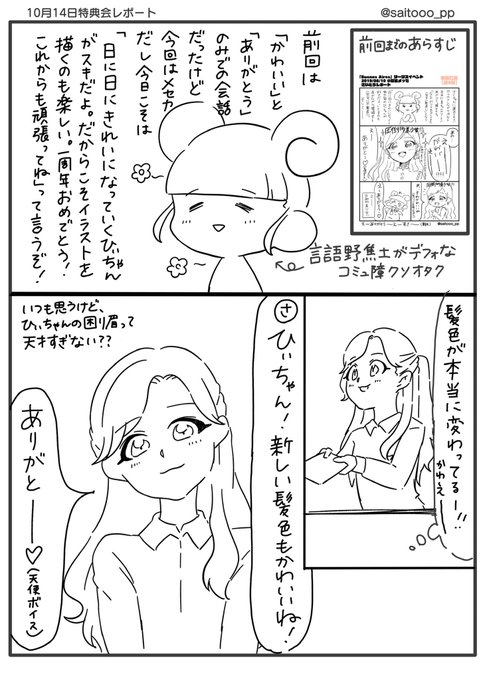 10月14日特典会レポート
@saitooo_pp
前回までのあらすじ
前回は
「かわいい」と
「ありがとう」
のみでの会話
だったけど
今回はメセカ
だし今日こそは
「日に日にきれいになっていくひぃちゃん
がスキだよ。だからこそイラストを
描くのも楽しい。一周年おめでとう!
これからも頑張ってね」って言うぞ!
言語野焦土がデフォな
コミュ障クソオタク
髪色が本当に変わってるー!!
かわえー
さ
ひぃちゃん!新しい髪色もかわいいね!
いつも思うけど、
ひぃちゃんの困り眉って
天才すぎない??
ありがとーー♡
(天使ボイス)